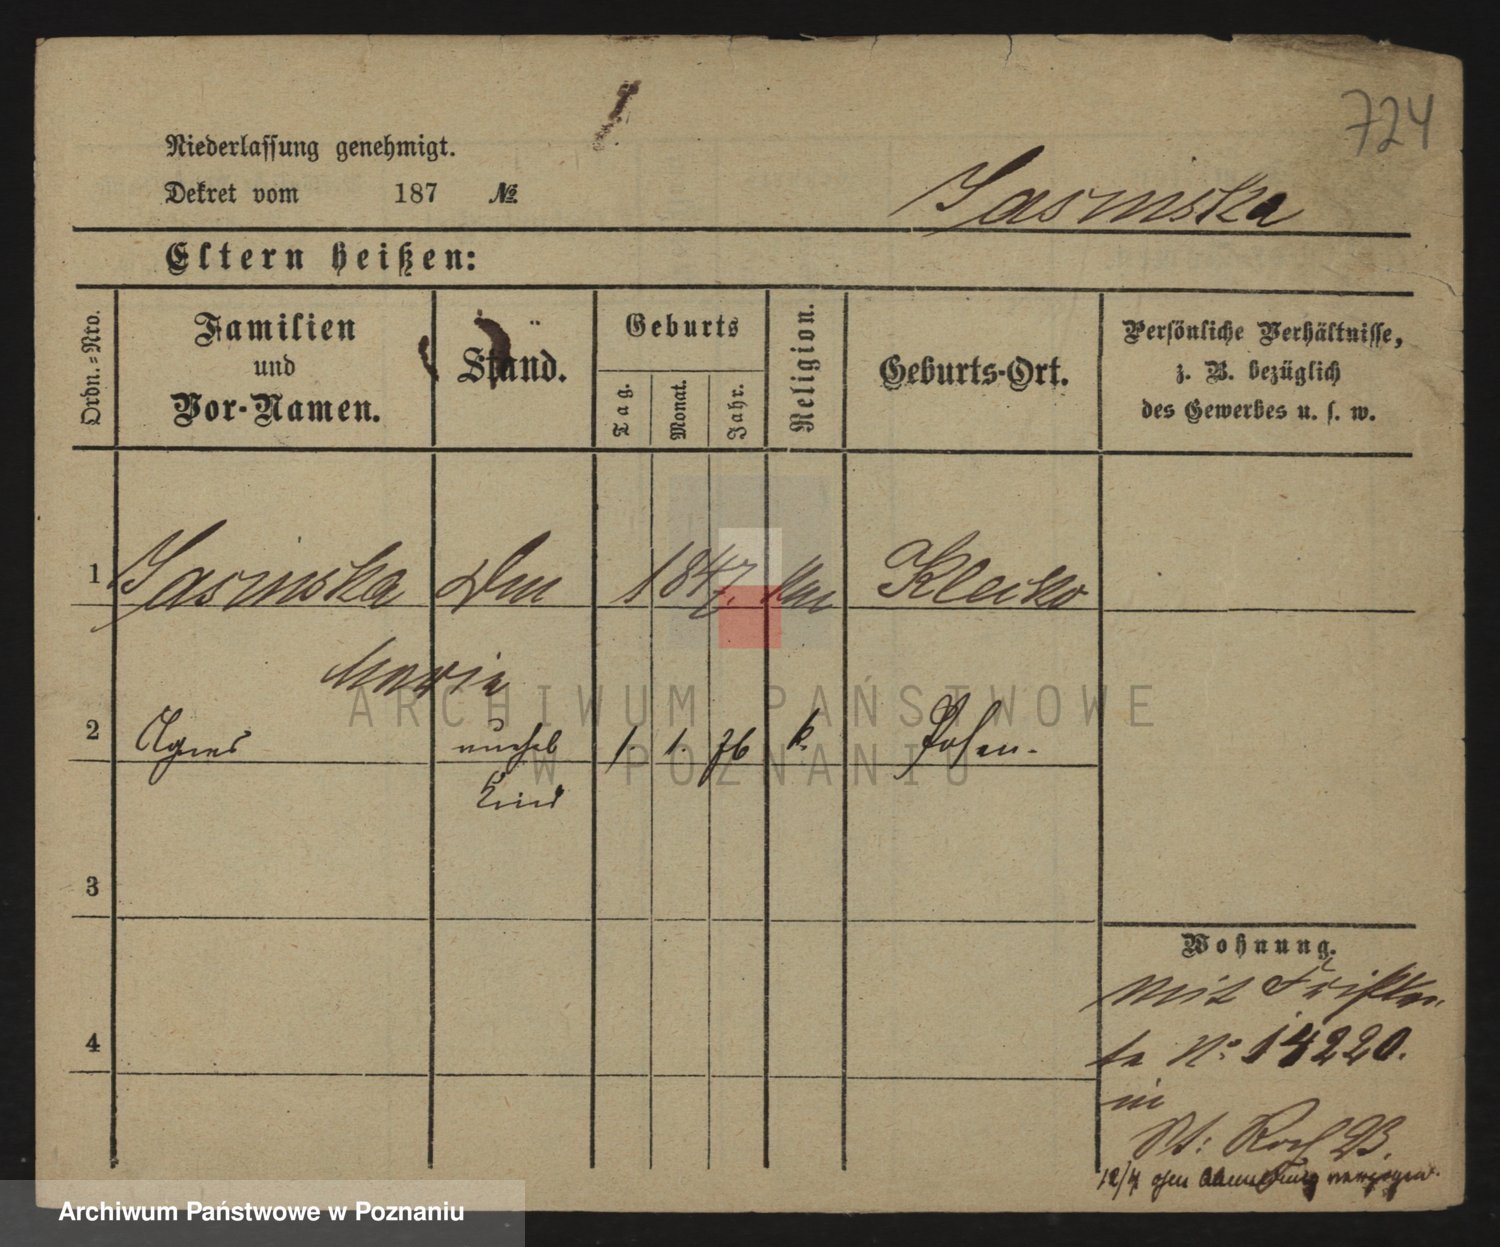 724
Niederlassung genehmigt.
Dekret vom 187 №
Jasinska
Eltern heißen:
Ordn.-Nro.
Familien und Vor-Namen.
Stand.
Geburts
Tag.
Monat.
Jahr.
Religion.
Geburts-Ort.
Persönliche Verhältnisse,
z. B. bezüglich
des Gewerbes u. s. w.
1 Jasinska 1847. Klecko
Marie
2 Agnes unehel 1. 1. 76 k. Posen.
Kind
3
4
Wohnung.
No. 14220.
in
St: Roch
ARCHIWUM PAŃSTWOWE
W POZNANIU
Archiwum Państwowe w Poznaniu